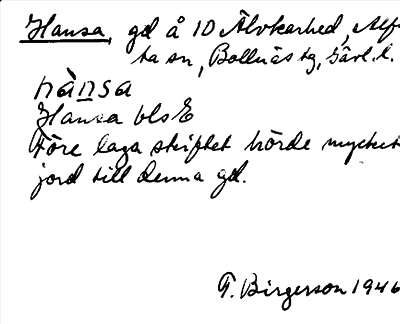 Hansa, gd å 10 Älvkarhed, Alf
ta sn, Bollnäs tg, Gävl. l.
hànsa
Hansa bls E
Före laga skiftet hörde mycket
jord till denna gd.
F. Birgerson 1946